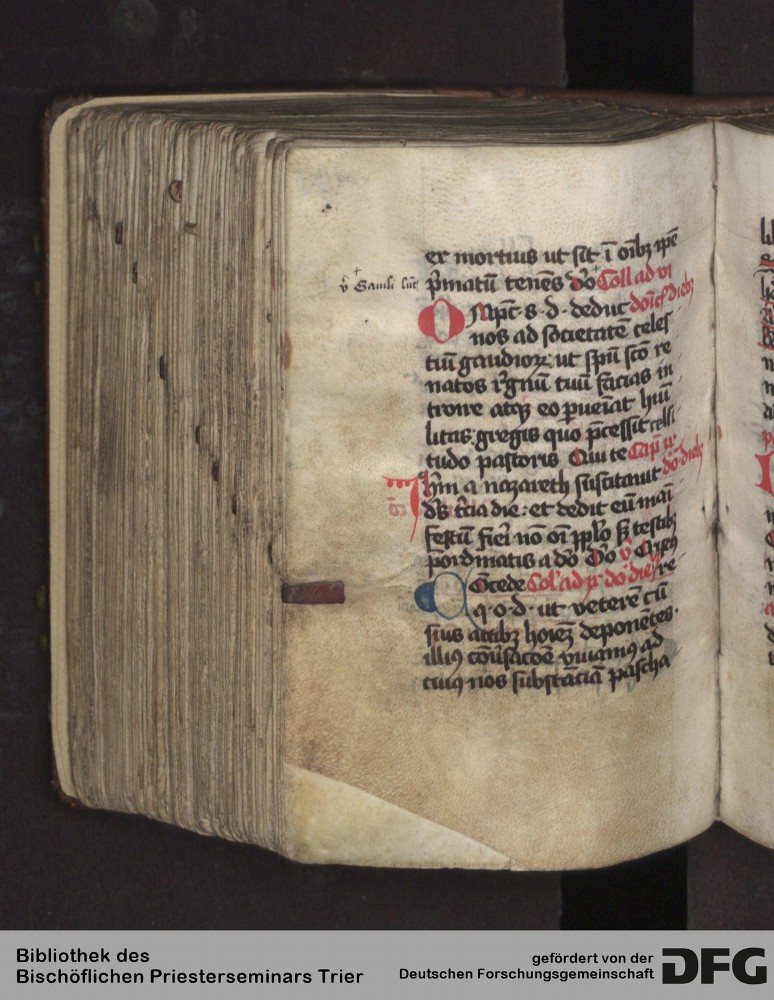 ex mortuis ut sit ī oībꝫ ip̄e
p̄matū tenēs dō Coll ad vi
Om̄ps s. d. deduc doīcꝭ diebꝫ
nos ad societatē celes
tiū gaudioꝝ ut sp̄u sc̄o re
natos rꝭgnū tuū facias in
troire atqꝫ eo ꝑueīat hūi
litas gregis quo p̄cessit celsi
tudo pastoris Qui te Cap̄
Ih̄m a nazareth suscitauit dō dieb
ds̄ tcīa die: et dedit eū mai
festū fieri nō oī pp̄lo sꝫ testibꝫ
p̄ordinatis a dō Dō
Cōcede Coll ad dō dieb re
q. o. d. ut veterē cū
suis actibꝫ hoīeꝫ deponētes.
illiꝰ cōūsacōe viuamꝰ ad
cuiꝰ nos substāciā pascha
Bibliothek des
Bischöflichen Priesterseminars Trier
gefördert von der
Deutschen Forschungsgemeinschaft
DFG